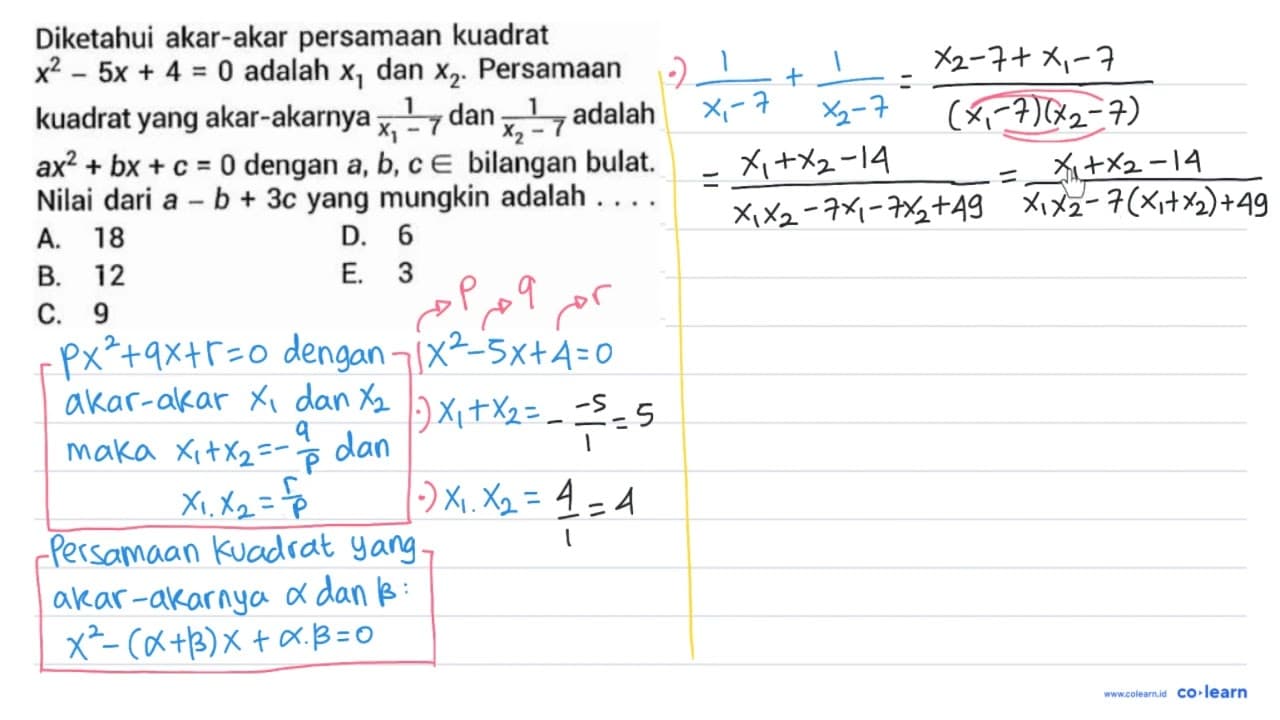 Diketahui akar-akar persamaan kuadrat
x² - 5x + 4 = 0 adalah x₁ dan x₂. Persamaan
kuadrat yang akar-akarnya 1/(x₁ - 7) dan 1/(x₂ - 7) adalah
ax² + bx + c = 0 dengan a, b, c ∈ bilangan bulat.
Nilai dari a - b + 3c yang mungkin adalah . . . .
A. 18
B. 12
C. 9
D. 6
E. 3
px²+qx+r=0 dengan
akar-akar x₁ dan x₂
maka x₁+x₂=-q/p dan
x₁.x₂=r/p
Persamaan kuadrat yang
akar-akarnya α dan β:
x²-(α+β)x+α.β=0
p q r
1x²-5x+4=0
•) x₁+x₂= - -5/1 = 5
•) x₁.x₂ = 4/1 = 4
•) 1/(x₁-7) + 1/(x₂-7) = (x₂-7+x₁-7)/((x₁-7)(x₂-7))
= (x₁+x₂-14)/(x₁x₂-7x₁-7x₂+49) = (x₁+x₂-14)/(x₁x₂-7(x₁+x₂)+49)
www.colearn.id co·learn